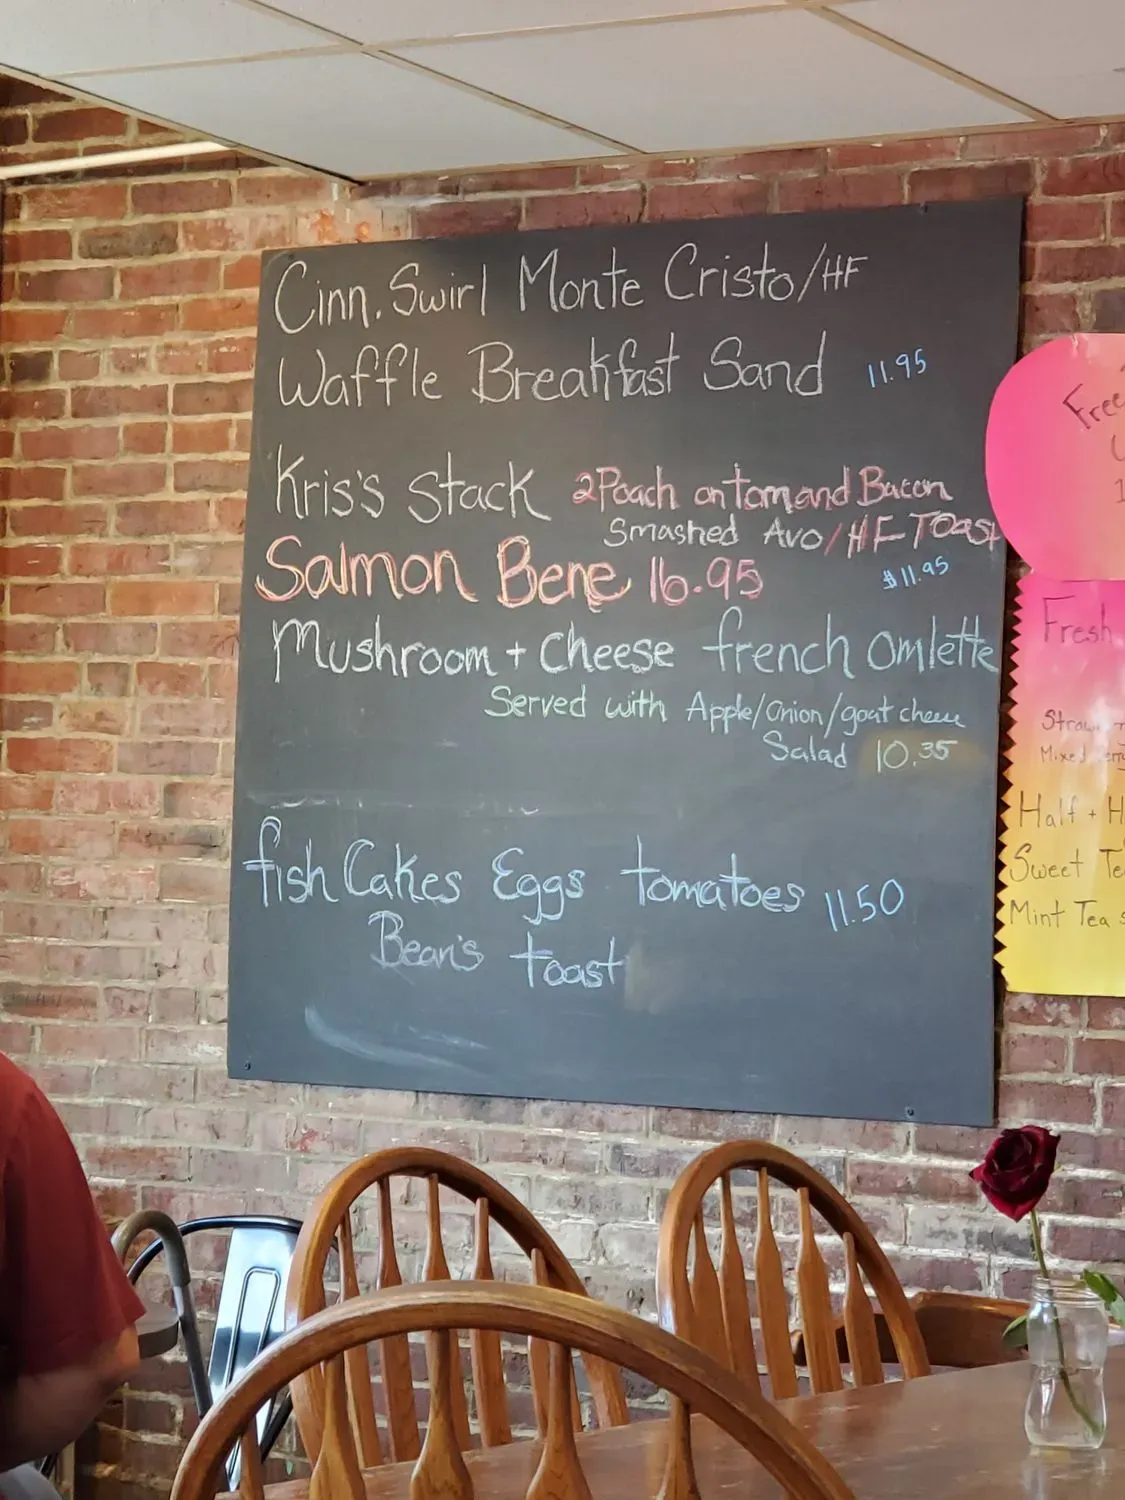 Cinn. Swirl Monte Cristo/HF
Waffle Breakfast Sand 11.95
Kris's Stack 2 Poach on tom and Bacon
Smashed Avo/HF Toast
$11.95
Salmon Bene 16.95
Mushroom + Cheese french omlette
Served with Apple/Onion/goat cheese
Salad 10.35
fish Cakes Eggs tomatoes 11.50
Bean's toast
Free
Fresh
Half + H
Sweet Te
Mint Tea